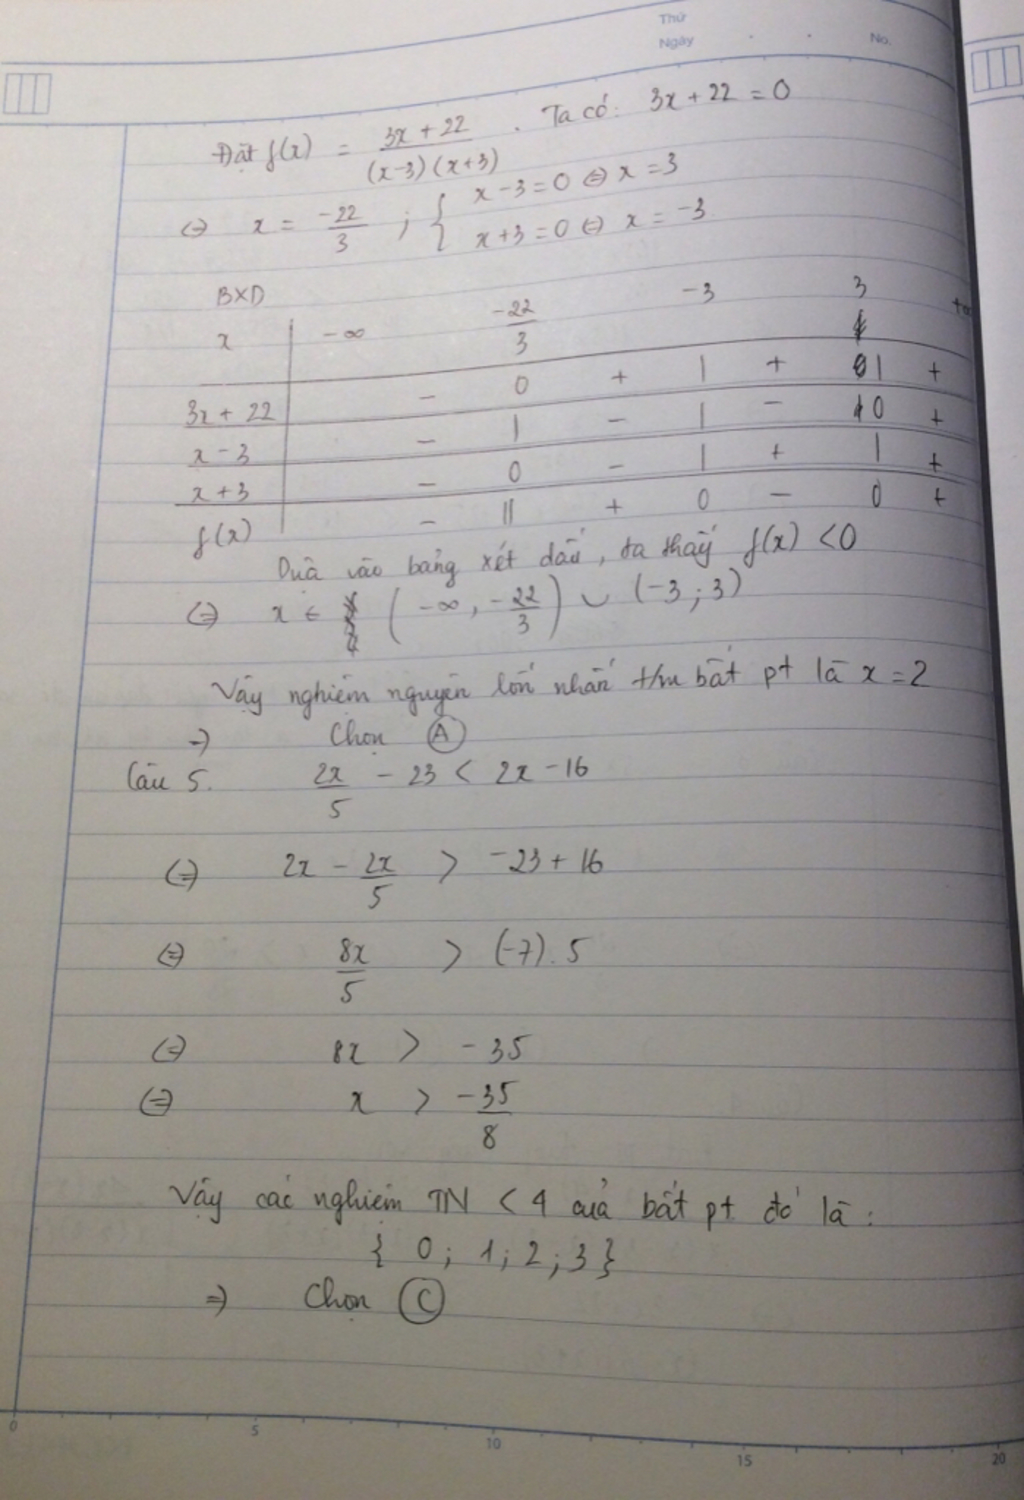 Thứ
Ngày . . No.
Đặt f(x) = (3x + 22)/((x-3)(x+3)) . Ta có: 3x + 22 = 0
(=) x = -22/3 ; { x - 3 = 0 (=) x = 3
x + 3 = 0 (=) x = -3
BXD
x | -∞ -22/3 -3 3 +∞
3x + 22 | - 0 + | + | +
x - 3 | - | - | - 0 +
x + 3 | - 0 - | + | +
f(x) | - || + 0 - 0 +
Dựa vào bảng xét dấu, ta thấy f(x) < 0
(=) x ∈ (-∞, -22/3) ∪ (-3; 3)
Vậy nghiệm nguyên lớn nhất t/m bất pt là x = 2
=) Chọn A
Câu 5. 2x/5 - 23 < 2x - 16
(=) 2x - 2x/5 > -23 + 16
(=) 8x/5 > (-7).5
(=) 8x > -35
(=) x > -35/8
Vậy các nghiệm TN < 4 của bất pt đó là:
{ 0; 1; 2; 3 }
=) Chọn C
0 5 10 15 20